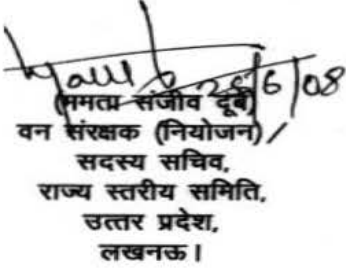 25/6/08
(ममता संजीव दूबे)
वन संरक्षक (नियोजन)
सदस्य सचिव,
राज्य स्तरीय समिति,
उत्तर प्रदेश,
लखनऊ।